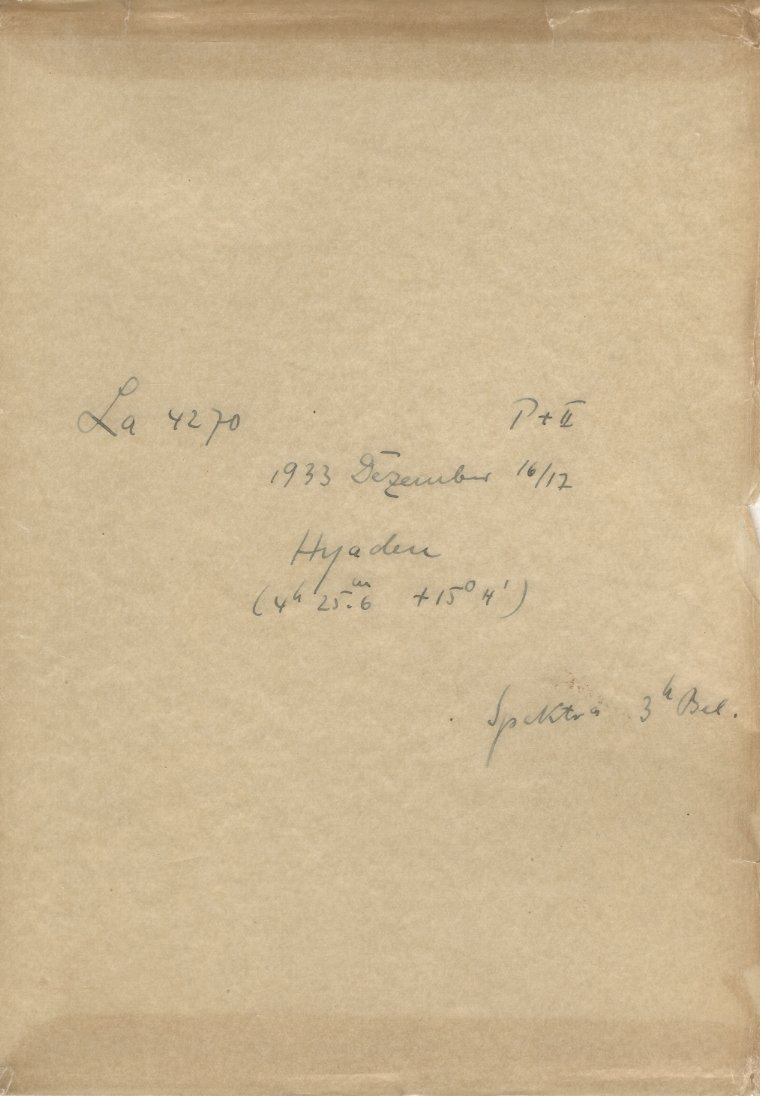 La 4270 P+II
1933 Dezember 16/17
Hyaden
(4h 25.m6 +15° 4')
Spektra 3h Bel.